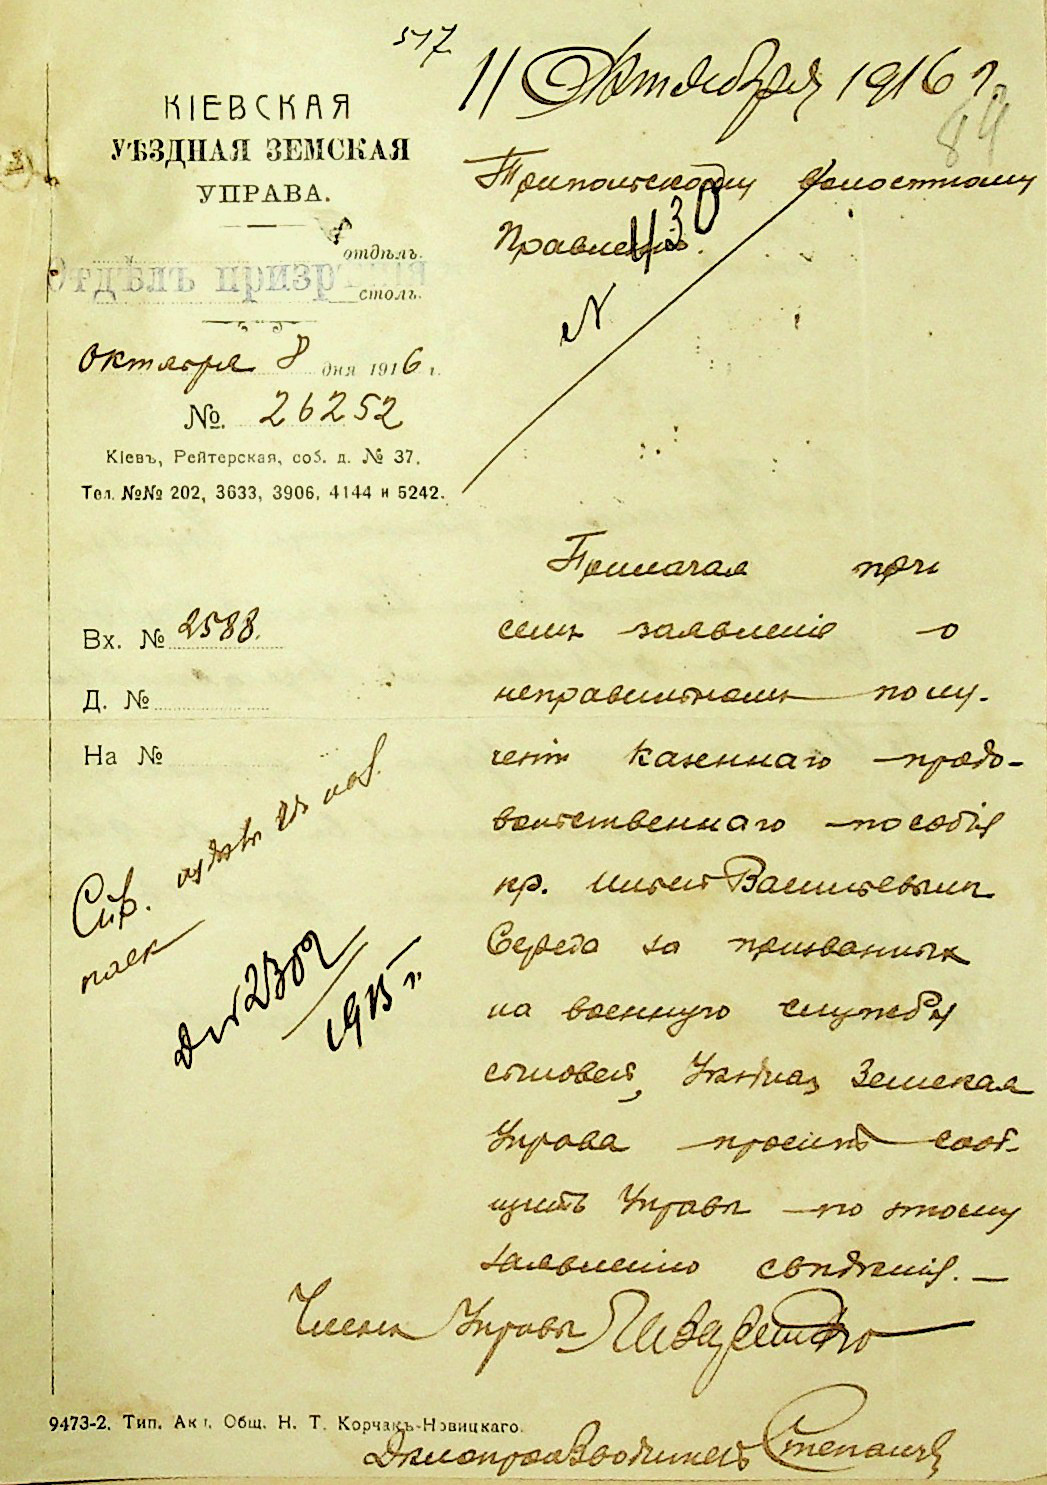 517
11 Октября 1916 г.
КІЕВСКАЯ
УѢЗДНАЯ ЗЕМСКАЯ
УПРАВА.
отдѣлъ.
Отдѣлъ призрѣнія
столъ.
Октября 8 дня 1916 г.
№. 26252
Кіевъ, Рейтерская, соб. д. № 37.
Тел. №№ 202, 3633, 3906, 4144 и 5242.
Трипольскому Волостному
Правленію.
430
N
Вх. № 2588.
Д. №
На №
Прилагая при
семъ заявленіе о
неправильномъ полу-
ченіи казеннаго продо-
вольственнаго пособія
кр. Васильевымъ
Середа за призванныхъ
на военную службу
сыновей, Уѣздная Земская
Управа проситъ сооб-
щить Управѣ по этому
заявленію свѣдѣнія.—
Спр.
паек
1915 г.
Членъ Управы
9473-2. Тип. Акц. Общ. Н. Т. Корчакъ-Новицкаго.
Дѣлопроизводитель